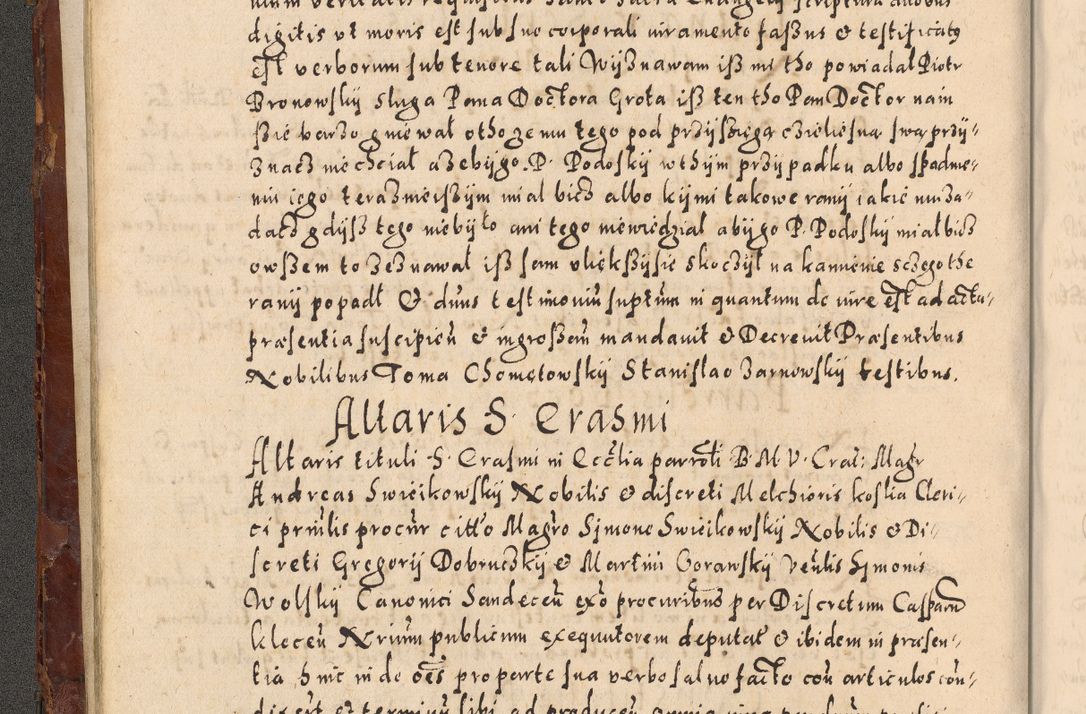 digitis vt moris est sub suo corporali iuramento fassus & testificatus
est verborum sub tenore tali Wyznawam isz mi tho powiadal Piotr
Bronowsky sluga Pana Doctora Grota isz ten tho Pan Doctor nain
szie barzo gniewał otho ze mu tego pod przysięgą czieliesną swą przy-
znacz nie chciał azebygo P. Podosky w thym przypadku albo spadnie-
niu iego teraznieiszym miał bicz albo kyimi takowe rany iakie mu za-
dacz gdysz tego nie było ani tego niewiedział aby go P. Podosky miał bicz
owszem to zeznawał isz sam vliększy sie skoczył na kamienie sczego the
rany popadł & duns testimoniū suptūm in quantum de iure est ad acta-
præsentia suscipieñ & ingrossañ mandauit & Decreuit Præsentibus
Nobilibus Toma Chomętowsky Stanislao Zarnowsky testibus.
Altaris S. Erasmi
Altaris tituli S. Erasmi in Eccłia parrołi B. M. V. Crac: Magr
Andreas Swieikowsky Nobilis & discreti Melchioris koslia Cleri-
ci prnīlis procūr citto Magro Simone Swieikowsky Nobilis & Di-
screti Gregorij Dobruczky & Martini Gorawsky Venlis Symonis
Wolsky Canonici Sandeceñ exo procuribus per Discretum Casparū
kleceñ Nrium publicum exequutorem deputať & ibidem in præsen-
tia hinc inde oēs pro parte sua verbo saluo facto coñ articulos coñ-